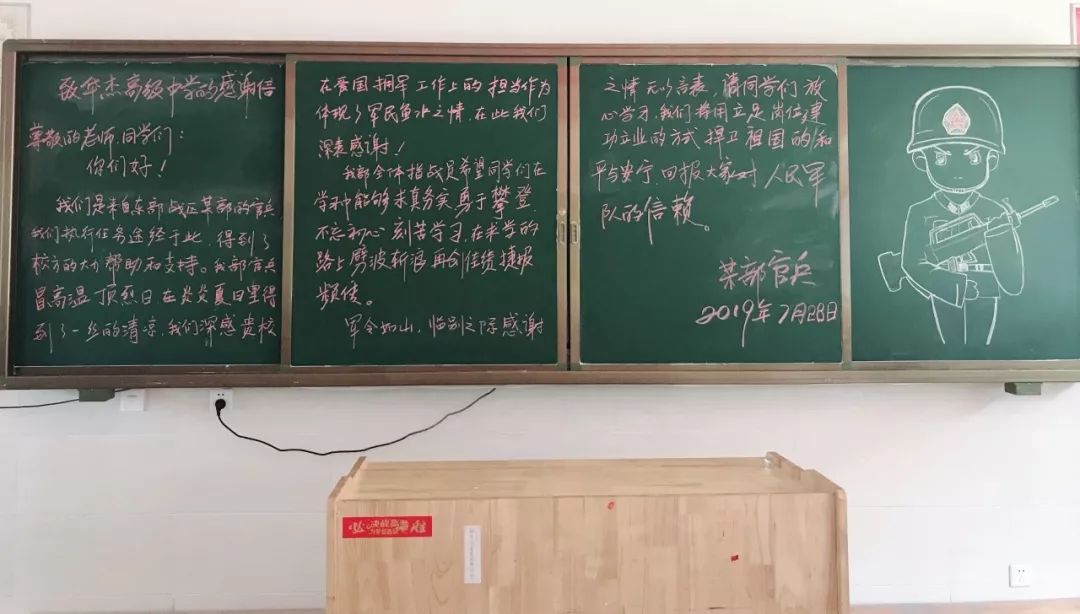 致华杰高级中学的感谢信
尊敬的老师、同学们：
你们好！
我们是来自东部战区某部的官兵
我们执行任务途经于此，得到了
校方的大力帮助和支持。我部官兵
冒高温 顶烈日 在炎炎夏日里得
到了一丝的清凉，我们深感贵校
在爱国拥军工作上的担当作为
体现了军民鱼水之情，在此我们
深表感谢！
我部全体指战员希望同学们在
学习中能够求真务实 勇于攀登
不忘初心 刻苦学习，在求学的
路上劈波斩浪 再创佳绩 捷报
频传。
军令如山，临别之际感谢
之情无以言表，请同学们放
心学习，我们将用立足岗位建
功立业的方式 捍卫祖国的和
平与安宁，回报大家对人民军
队的信赖。
某部官兵
2019年7月28日
决战高考
必 胜